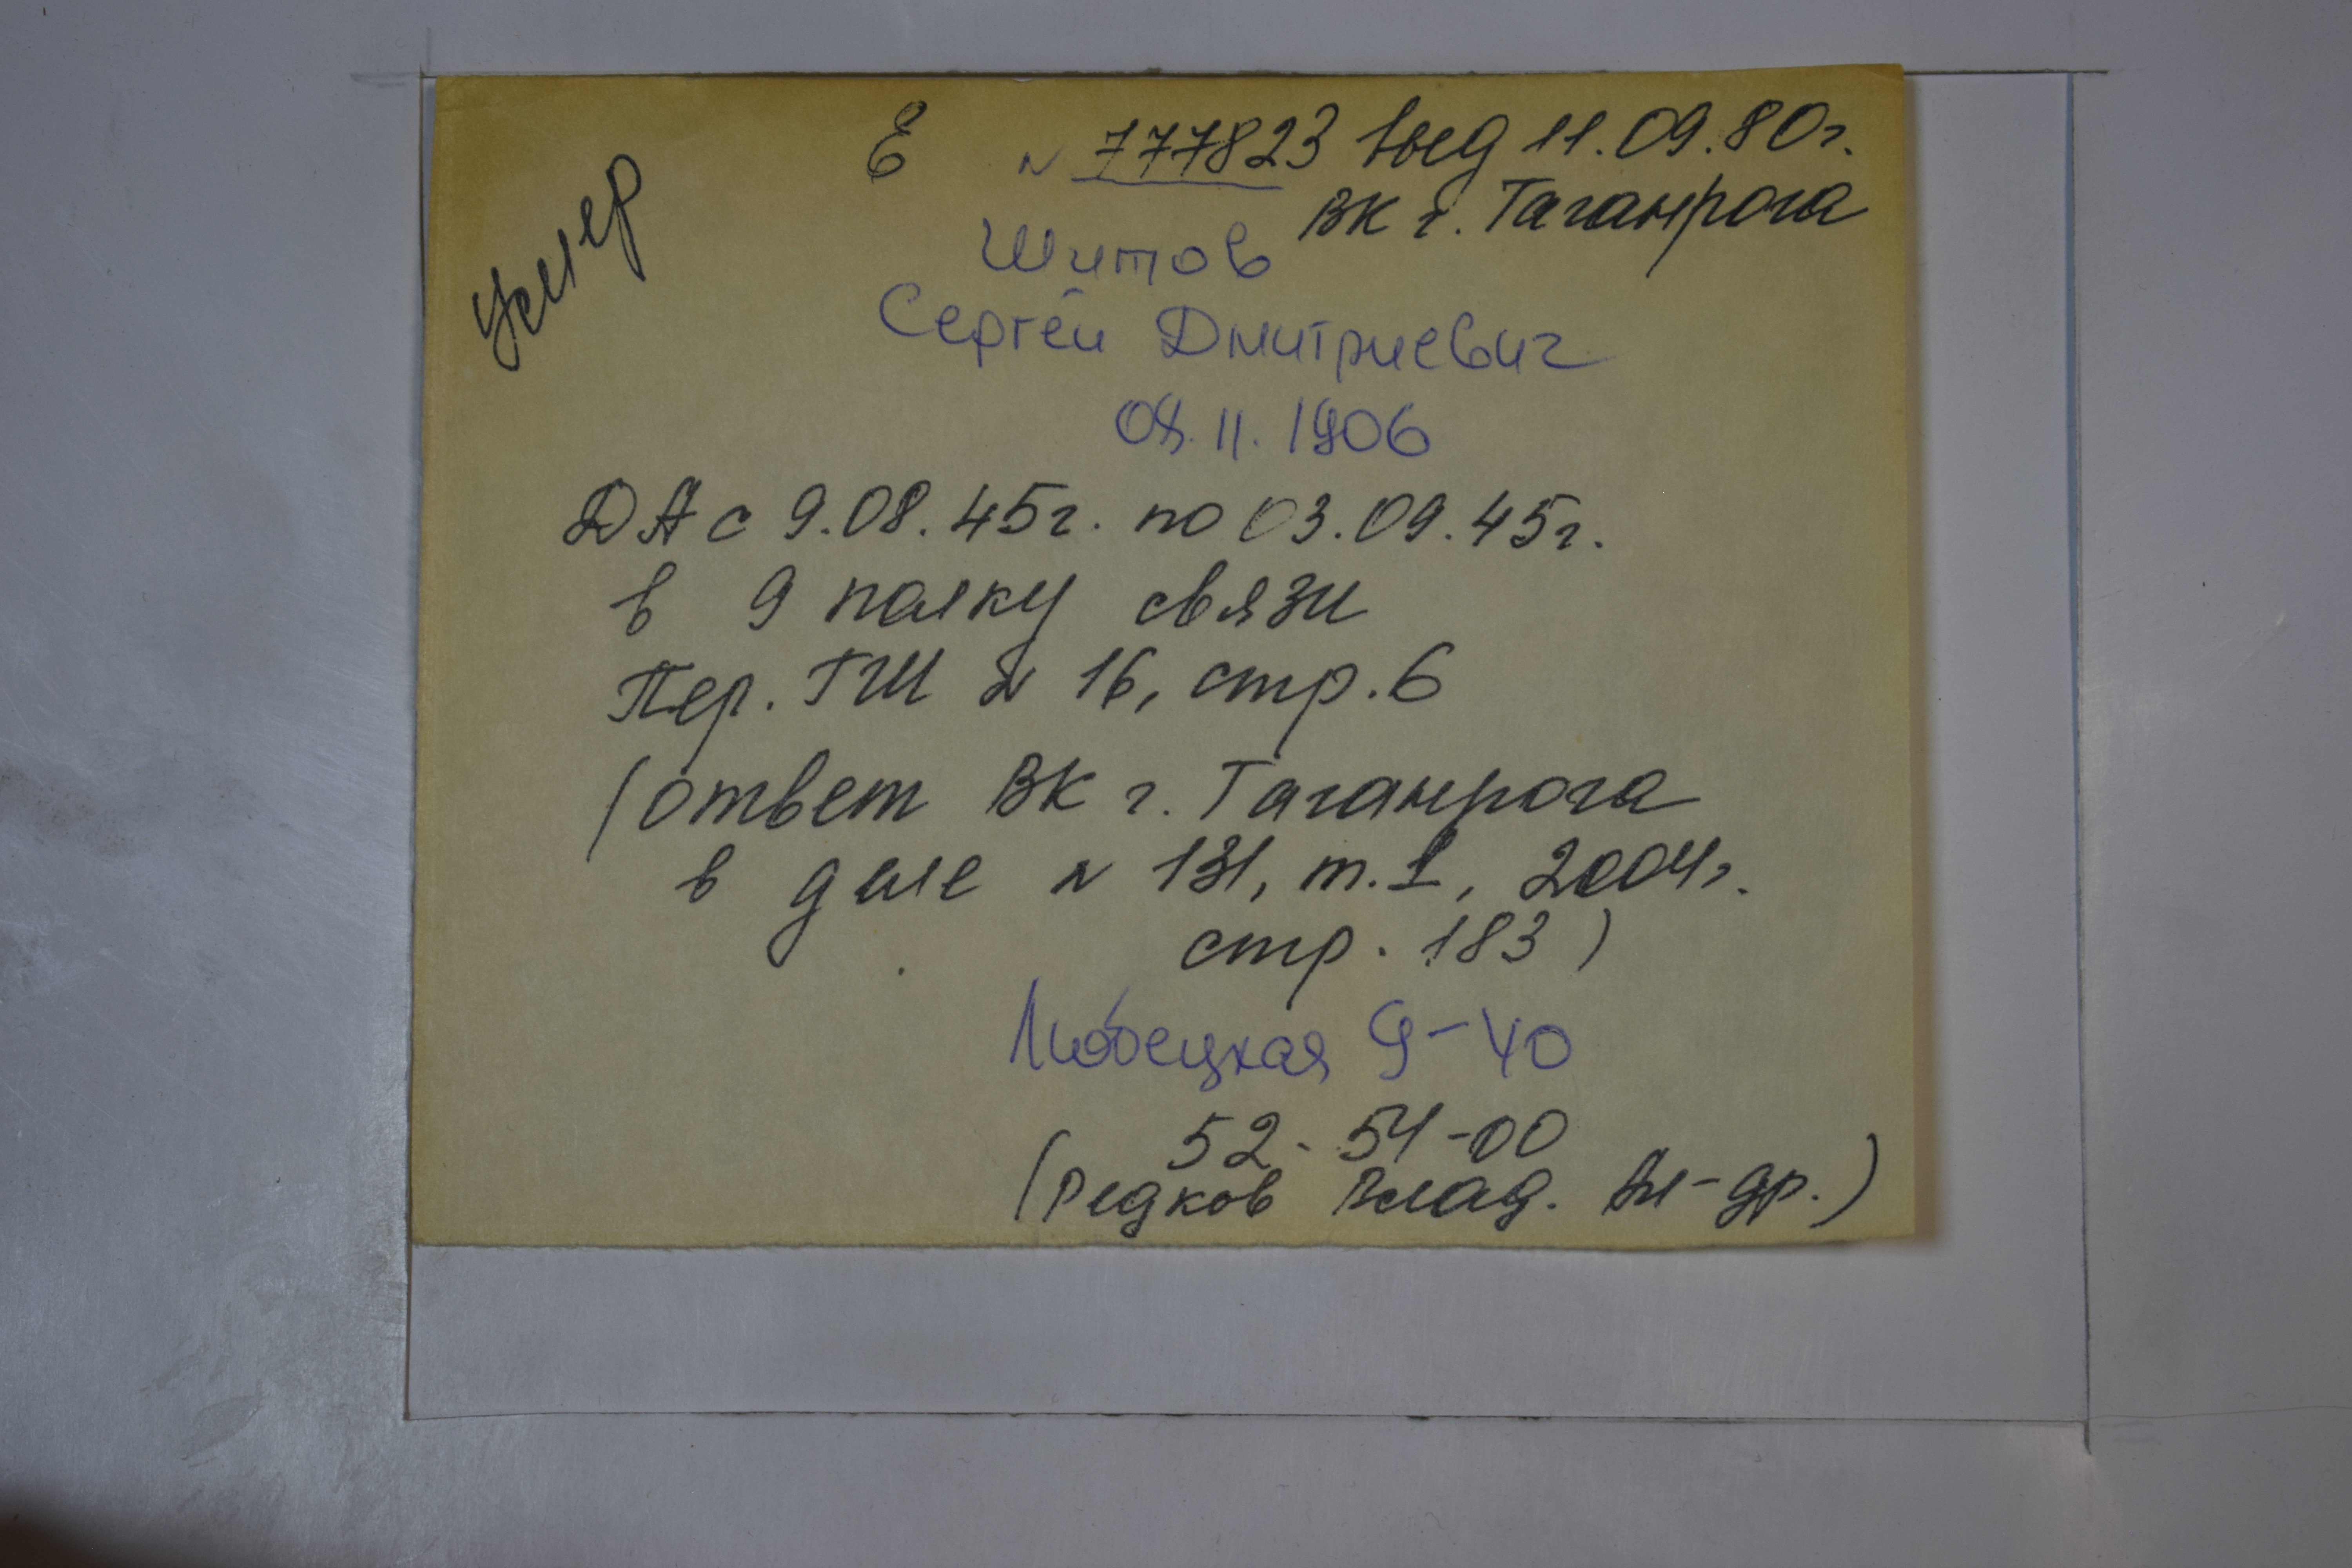 умер
Е № 777823 выд 11.09.80г.
ВК г. Таганрога
Шитов
Сергей Дмитриевич
08.11.1906
ДА с 9.08.45г. по 03.09.45г.
в 9 полку связи
Пер. ГШ № 16, стр. 6
(ответ ВК г. Таганрога
в деле № 131, т. 1, 2004г.
стр. 183)
Любецкая 9-40
52-54-00
(Редков Влад. Ал-др.)